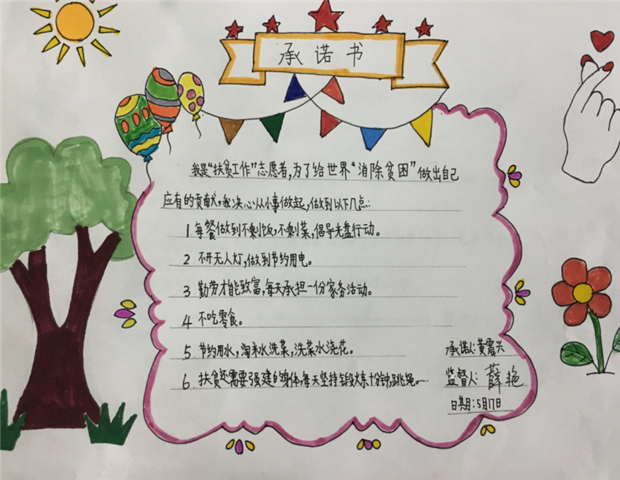 承诺书
我是“扶贫工作”志愿者,为了给世界“消除贫困”做出自己
应有的贡献,我决心从小事做起,做到以下几点:
1 每餐做到不剩饭,不剩菜,倡导光盘行动。
2 不开无人灯,做到节约用电。
3 勤劳才能致富,每天承担一份家务活动。
4 不吃零食。
5 节约用水,淘米水洗菜,洗菜水浇花。
承诺人:黄震兴
6 扶贫还需要强健的身体,每天坚持锻炼十分钟,跳绳
监督人:薛艳
日期:5月17日